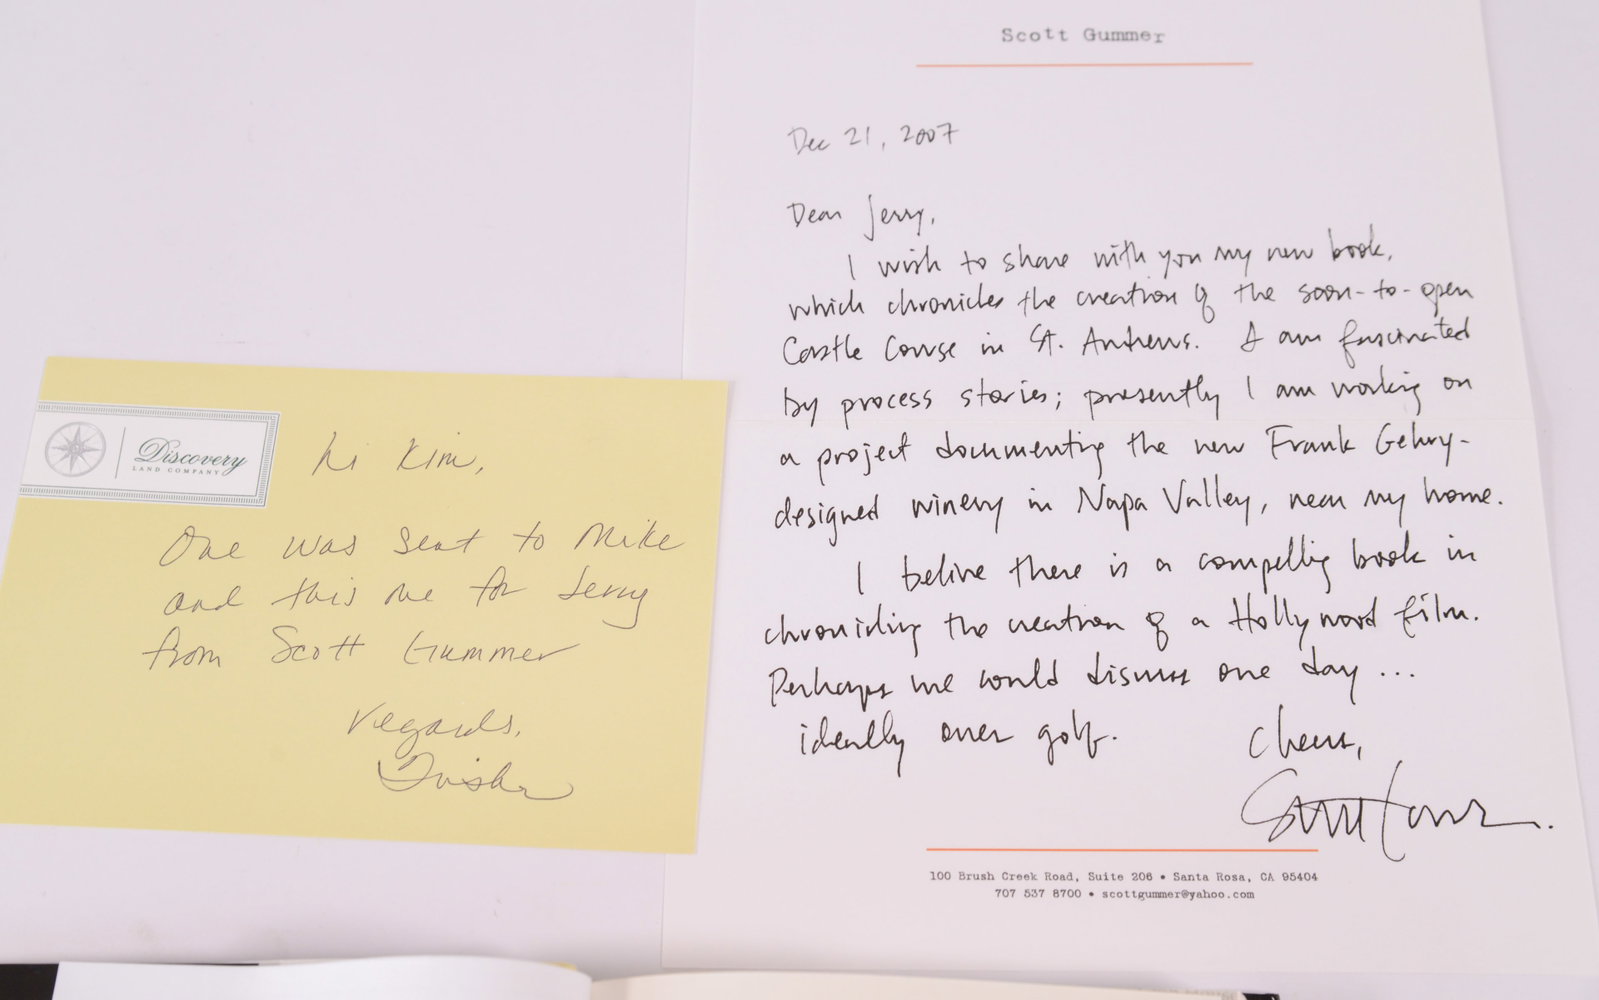 Discovery
LAND COMPANY
hi Kim,
One was sent to Mike
and this one for Jerry
from Scott Gummer
regards,
Scott Gummer
Dec 21, 2007
Dear Jerry,
I wish to share with you my new book,
which chronicles the creation of the soon-to-open
Castle Course in St. Andrews. I am fascinated
by process stories; presently I am working on
a project documenting the new Frank Gehry-
designed winery in Napa Valley, near my home.
I believe there is a compelling book in
chronicling the creation of a Hollywood film.
Perhaps we could discuss one day ...
ideally over golf.
Cheers,
100 Brush Creek Road, Suite 206 • Santa Rosa, CA 95404
707 537 8700 • scottgummer@yahoo.com